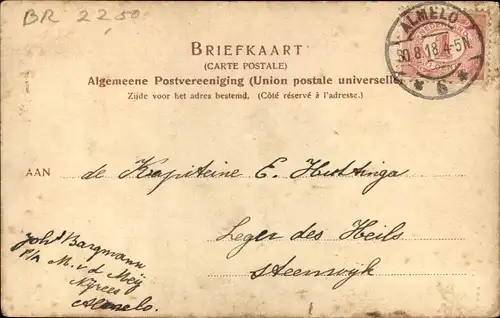 BR 22.50
ALMELO
30.8.18.4-5N
6
BRIEFKAART
(CARTE POSTALE)
Algemeene Postvereeniging (Union postale universelle)
Zijde voor het adres bestemd. (Côté réservé à l'adresse.)
AAN de Kapiteine E. Huttinga
Leger des Heils
Steenwijk
Joh's Bargmann
P/a M. v. d. Meij
Nijrees
Almelo.